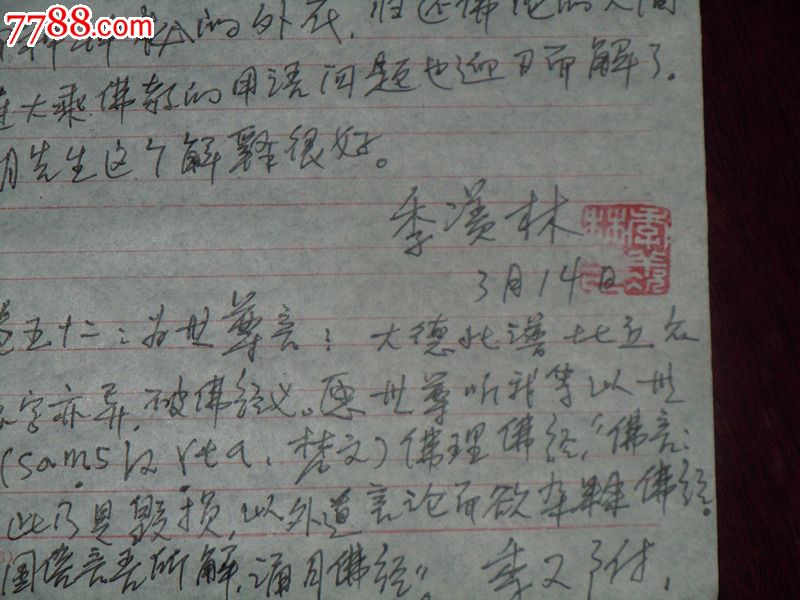 7788.com
的外衣，归还佛陀的人间
连大乘佛教的用语问题也迎刃而解了。
月先生这个解释很好。
季羡林
3月14日
五十二：为世尊言：大德此
字亦异，破佛经义。愿世尊听我等以世
(samskrta，梵文)佛理佛经，"佛言：
此乃是毁损，以外道言论而欲杂糅佛经。
国俗言吾所解，诵习佛经"。季又附，